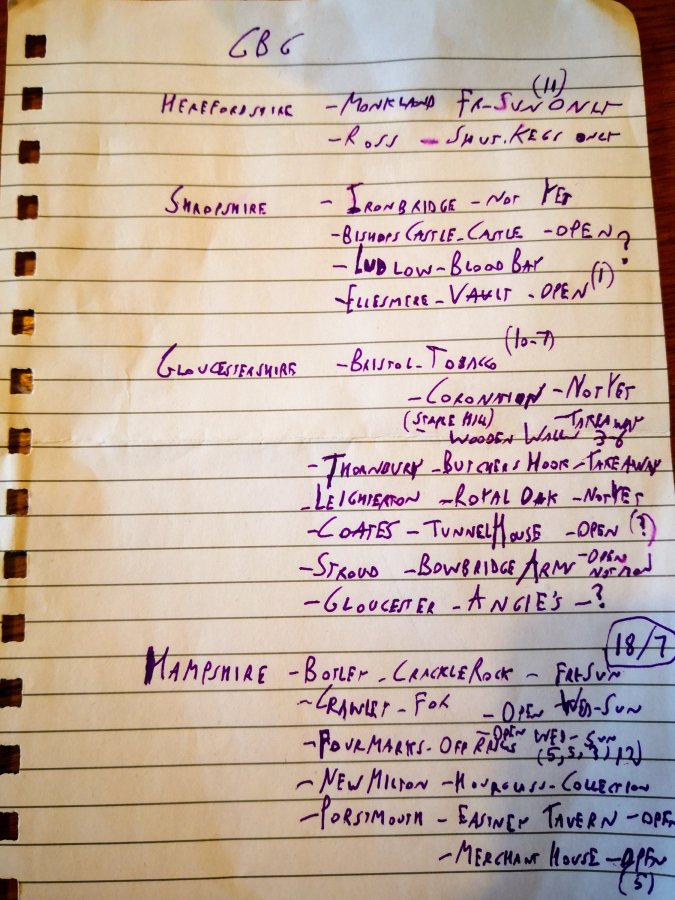 GBG
HEREFORDSHIRE - MONKLAND FR-SUN ONLY (11)
- ROSS - SHUT. KEGS ONLY
SHROPSHIRE - IRONBRIDGE - NOT YET
- BISHOPS CASTLE - CASTLE - OPEN
- LUDLOW - BLOOD BAY ?
- ELLESMERE - VAULT - OPEN (1)
GLOUCESTERSHIRE - BRISTOL - TOBACCO (10-7)
- CORONATION - NOT YET
(STAPLE HILL) WOODEN WALLS - TAKEAWAY 3-6
- THORNBURY - BUTCHERS HOOK - TAKEAWAY
- LEIGHTERTON - ROYAL OAK - NOT YET
- COATES - TUNNEL HOUSE - OPEN (?)
- STROUD - BOWBRIDGE ARMS - OPEN NOT MON
- GLOUCESTER - ANGIE'S - ?
18/7
HAMPSHIRE - BOTLEY - CRACKLEROCK - FRI-SUN
- CRAWLEY - FOX - OPEN WED-SUN
- FOUR MARKS - OFF RAILS - OPEN WED-SUN
(5, 5, 3, 12)
- NEW MILTON - HOURGLASS - COLLECTION
- PORSTMOUTH - EASTNEY TAVERN - OPEN
- MERCHANT HOUSE - OPEN
(5)